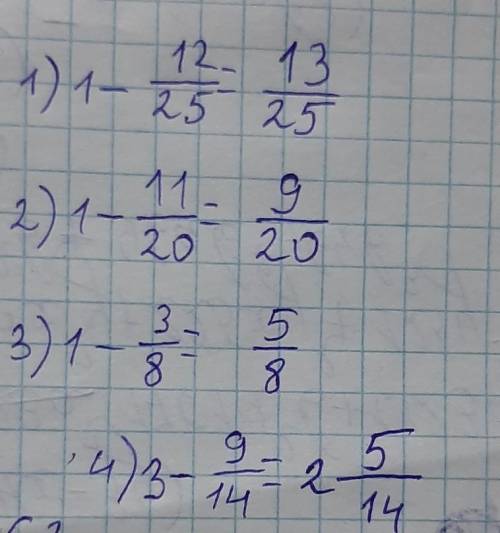 1) 1 - 12/25 = 13/25
2) 1 - 11/20 = 9/20
3) 1 - 3/8 = 5/8
4) 3 - 9/14 = 2 5/14